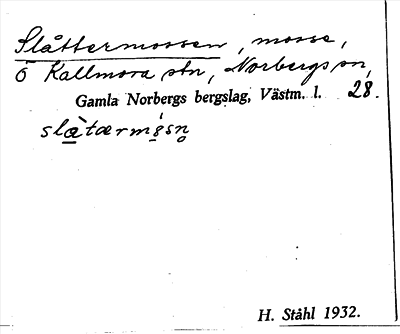 Slåttermossen, mosse,
Ö Kallmora stn, Norbergs sn,
Gamla Norbergs bergslag, Västm. l. 28.
slæ̀tærmósn̥
H. Ståhl 1932.